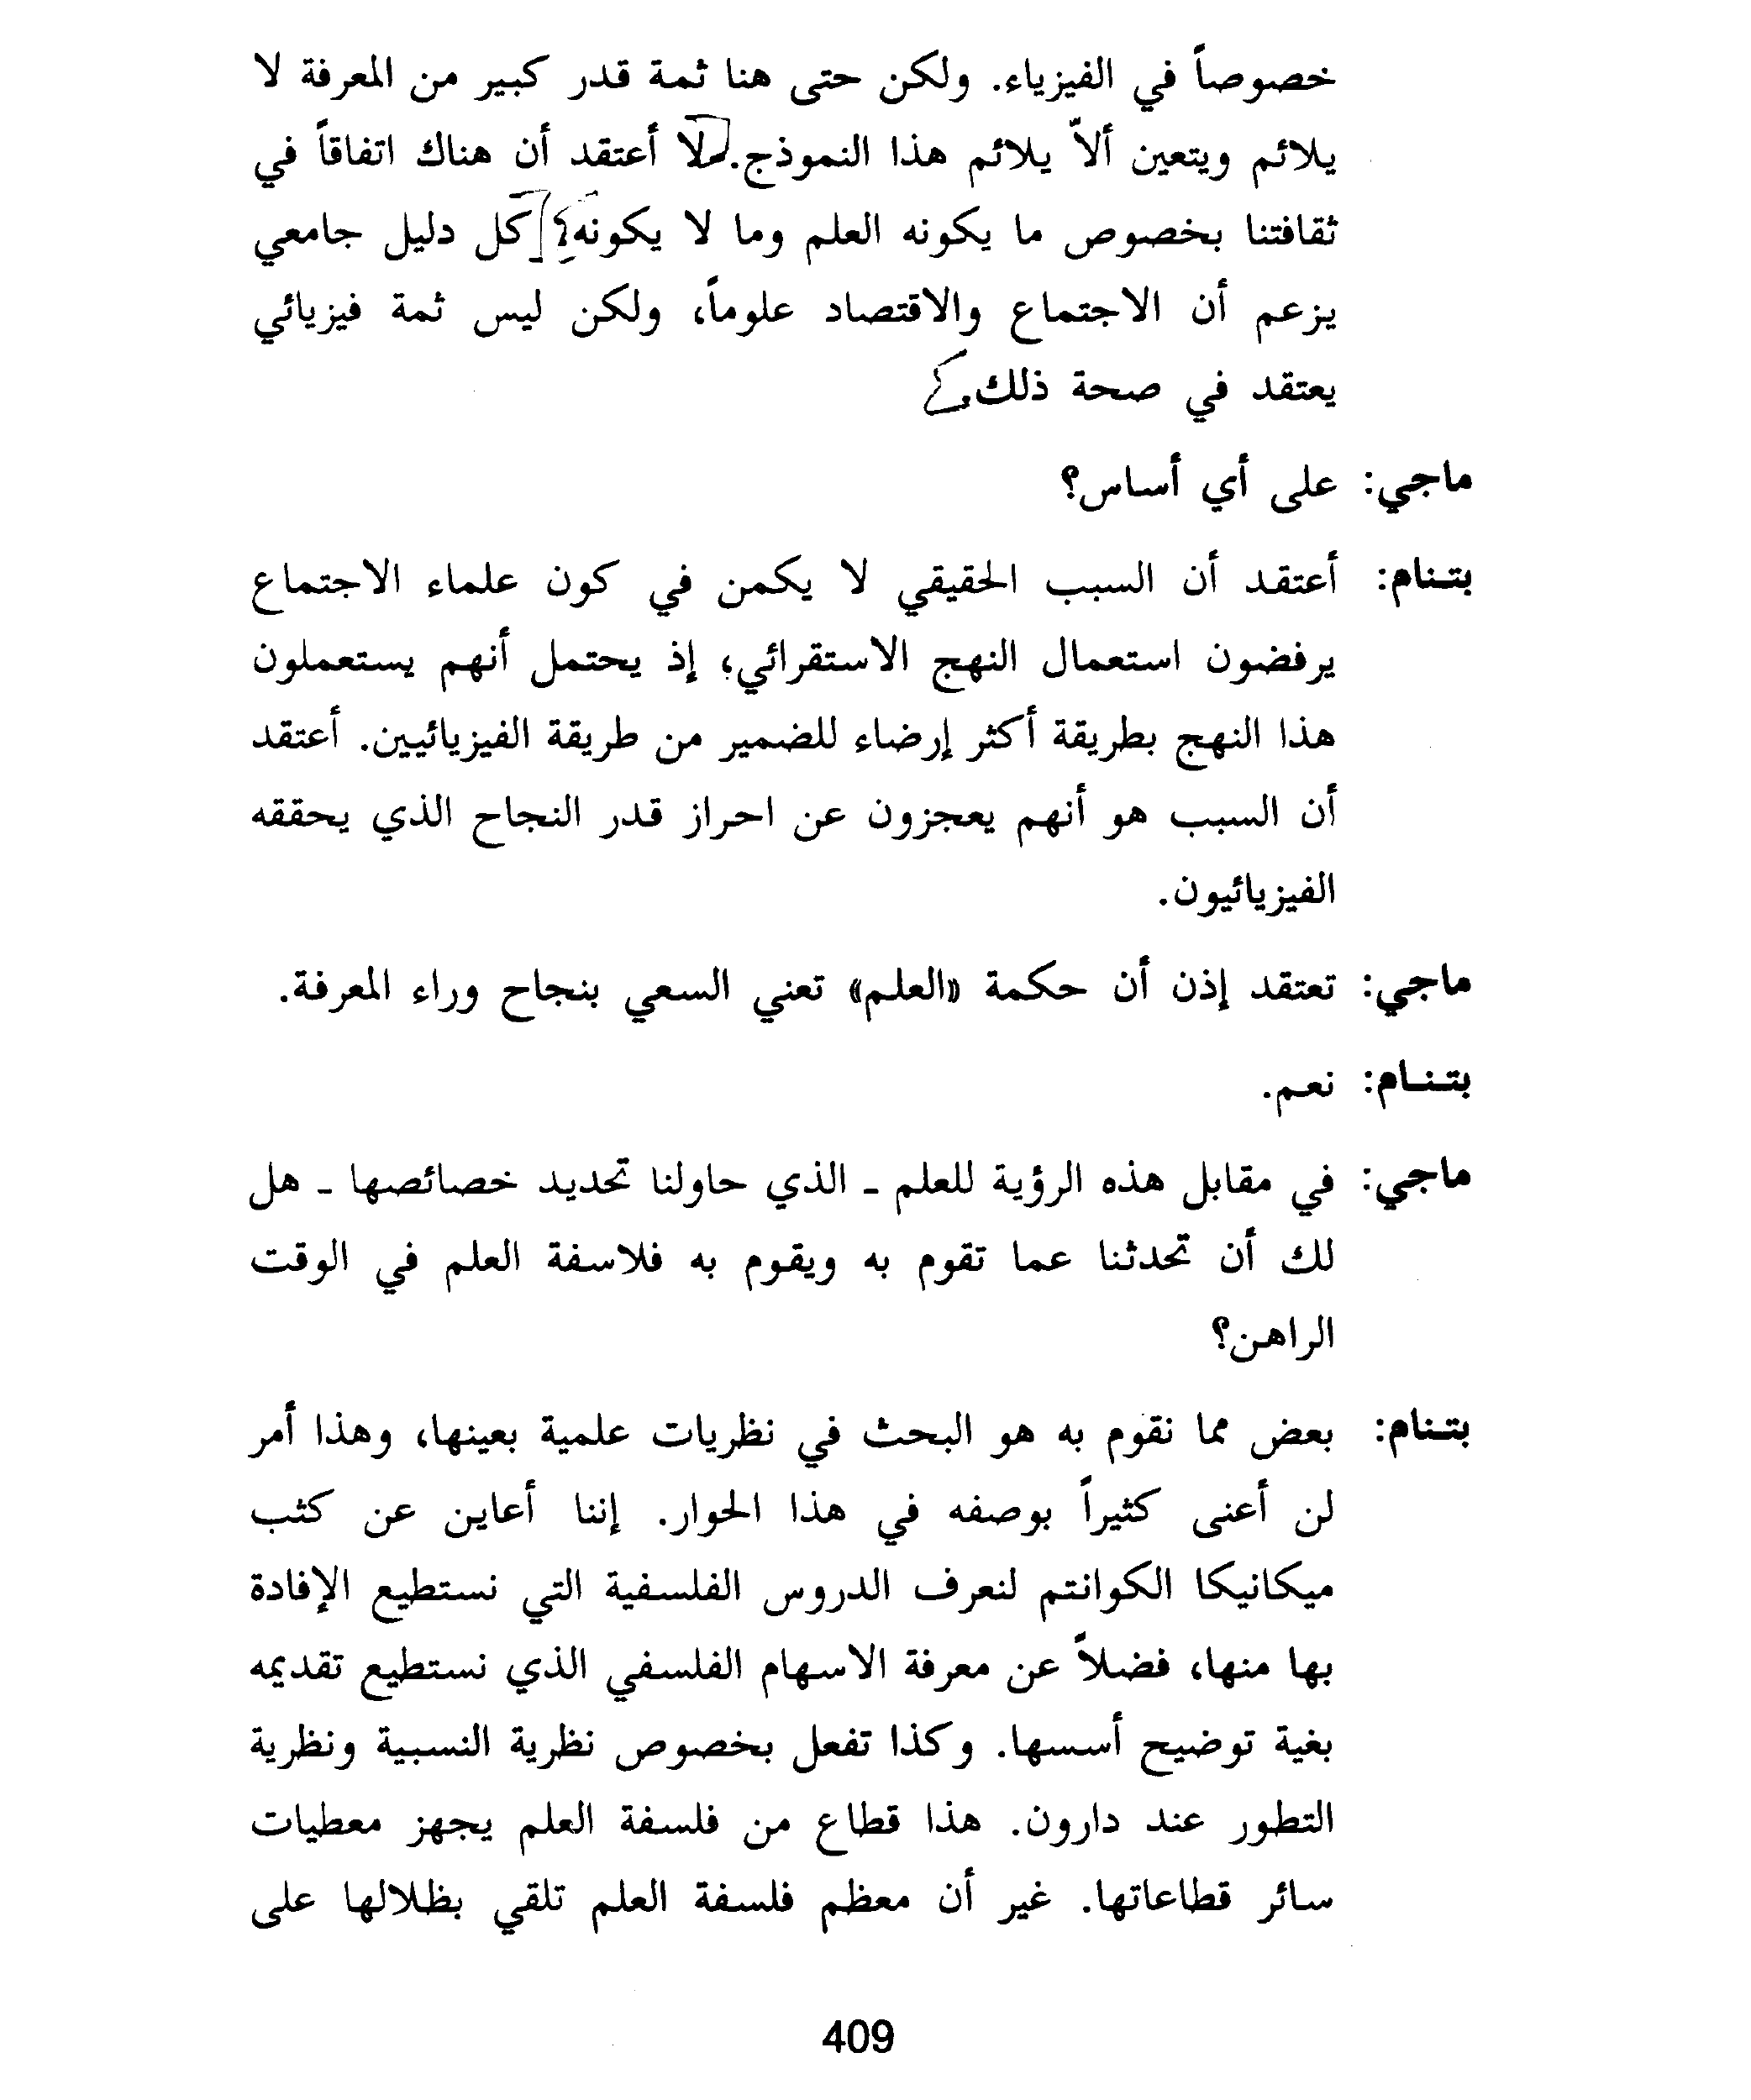 خصوصاً في الفيزياء. ولكن حتى هنا ثمة قدر كبير من المعرفة لا
يلائم ويتعين ألاّ يلائم هذا النموذج. لا أعتقد أن هناك اتفاقاً في
ثقافتنا بخصوص ما يكونه العلم وما لا يكونه؟ كل دليل جامعي
يزعم أن الاجتماع والاقتصاد علوماً، ولكن ليس ثمة فيزيائي
يعتقد في صحة ذلك.
ماجي: على أي أساس؟
بتنام: أعتقد أن السبب الحقيقي لا يكمن في كون علماء الاجتماع
يرفضون استعمال النهج الاستقرائي؛ إذ يحتمل أنهم يستعملون
هذا النهج بطريقة أكثر إرضاء للضمير من طريقة الفيزيائيين. أعتقد
أن السبب هو أنهم يعجزون عن احراز قدر النجاح الذي يحققه
الفيزيائيون.
ماجي: تعتقد إذن أن حكمة «العلم» تعني السعي بنجاح وراء المعرفة.
بتنام: نعم.
ماجي: في مقابل هذه الرؤية للعلم ـ الذي حاولنا تحديد خصائصها ـ هل
لك أن تحدثنا عما تقوم به ويقوم به فلاسفة العلم في الوقت
الراهن؟
بتنام: بعض مما نقوم به هو البحث في نظريات علمية بعينها، وهذا أمر
لن أعنى كثيراً بوصفه في هذا الحوار. إننا أعاين عن كثب
ميكانيكا الكوانتم لنعرف الدروس الفلسفية التي نستطيع الإفادة
بها منها، فضلاً عن معرفة الاسهام الفلسفي الذي نستطيع تقديمه
بغية توضيح أسسها. وكذا تفعل بخصوص نظرية النسبية ونظرية
التطور عند دارون. هذا قطاع من فلسفة العلم يجهز معطيات
سائر قطاعاتها. غير أن معظم فلسفة العلم تلقي بظلالها على
409